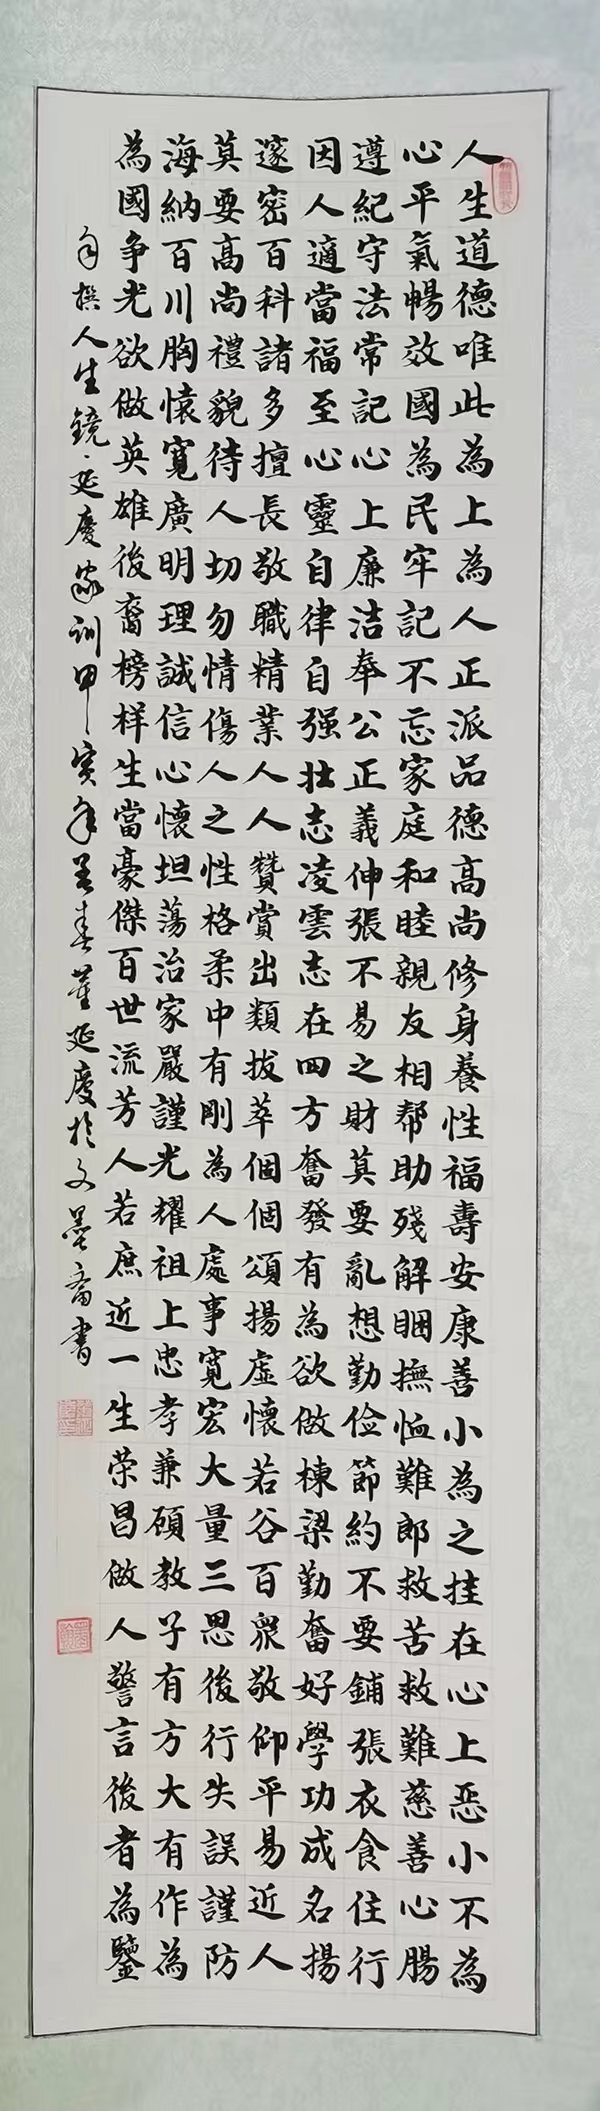 人生道德唯此為上為人正派品德高尚修身養性福壽安康善小為之挂在心上惡小不為
心平氣暢效國為民牢記不忘家庭和睦親友相帮助殘解困撫恤難郎救苦救難慈善心腸
遵紀守法常記心上廉洁奉公正義伸張不易之財莫要亂想勤俭節約不要鋪張衣食住行
因人適當福至心靈自律自强壮志凌雲志在四方奮發有為欲做棟梁勤奮好學功成名揚
邃密百科諸多擅長敬職精業人人贊賞出類拔萃個個頌揚虚懷若谷百衆敬仰平易近人
莫要高尚禮貌待人切勿情傷人之性格柔中有剛為人處事寬宏大量三思後行失誤謹防
海納百川胸懷寬廣明理誠信心懷坦蕩治家嚴謹光耀祖上忠孝兼顾教子有方大有作為
為國争光欲做英雄後裔榜样生當豪傑百世流芳人若庶近一生荣昌做人警言後者為鑒
自撰人生鏡·延慶家训甲寅年孟春董延慶於文墨斎書